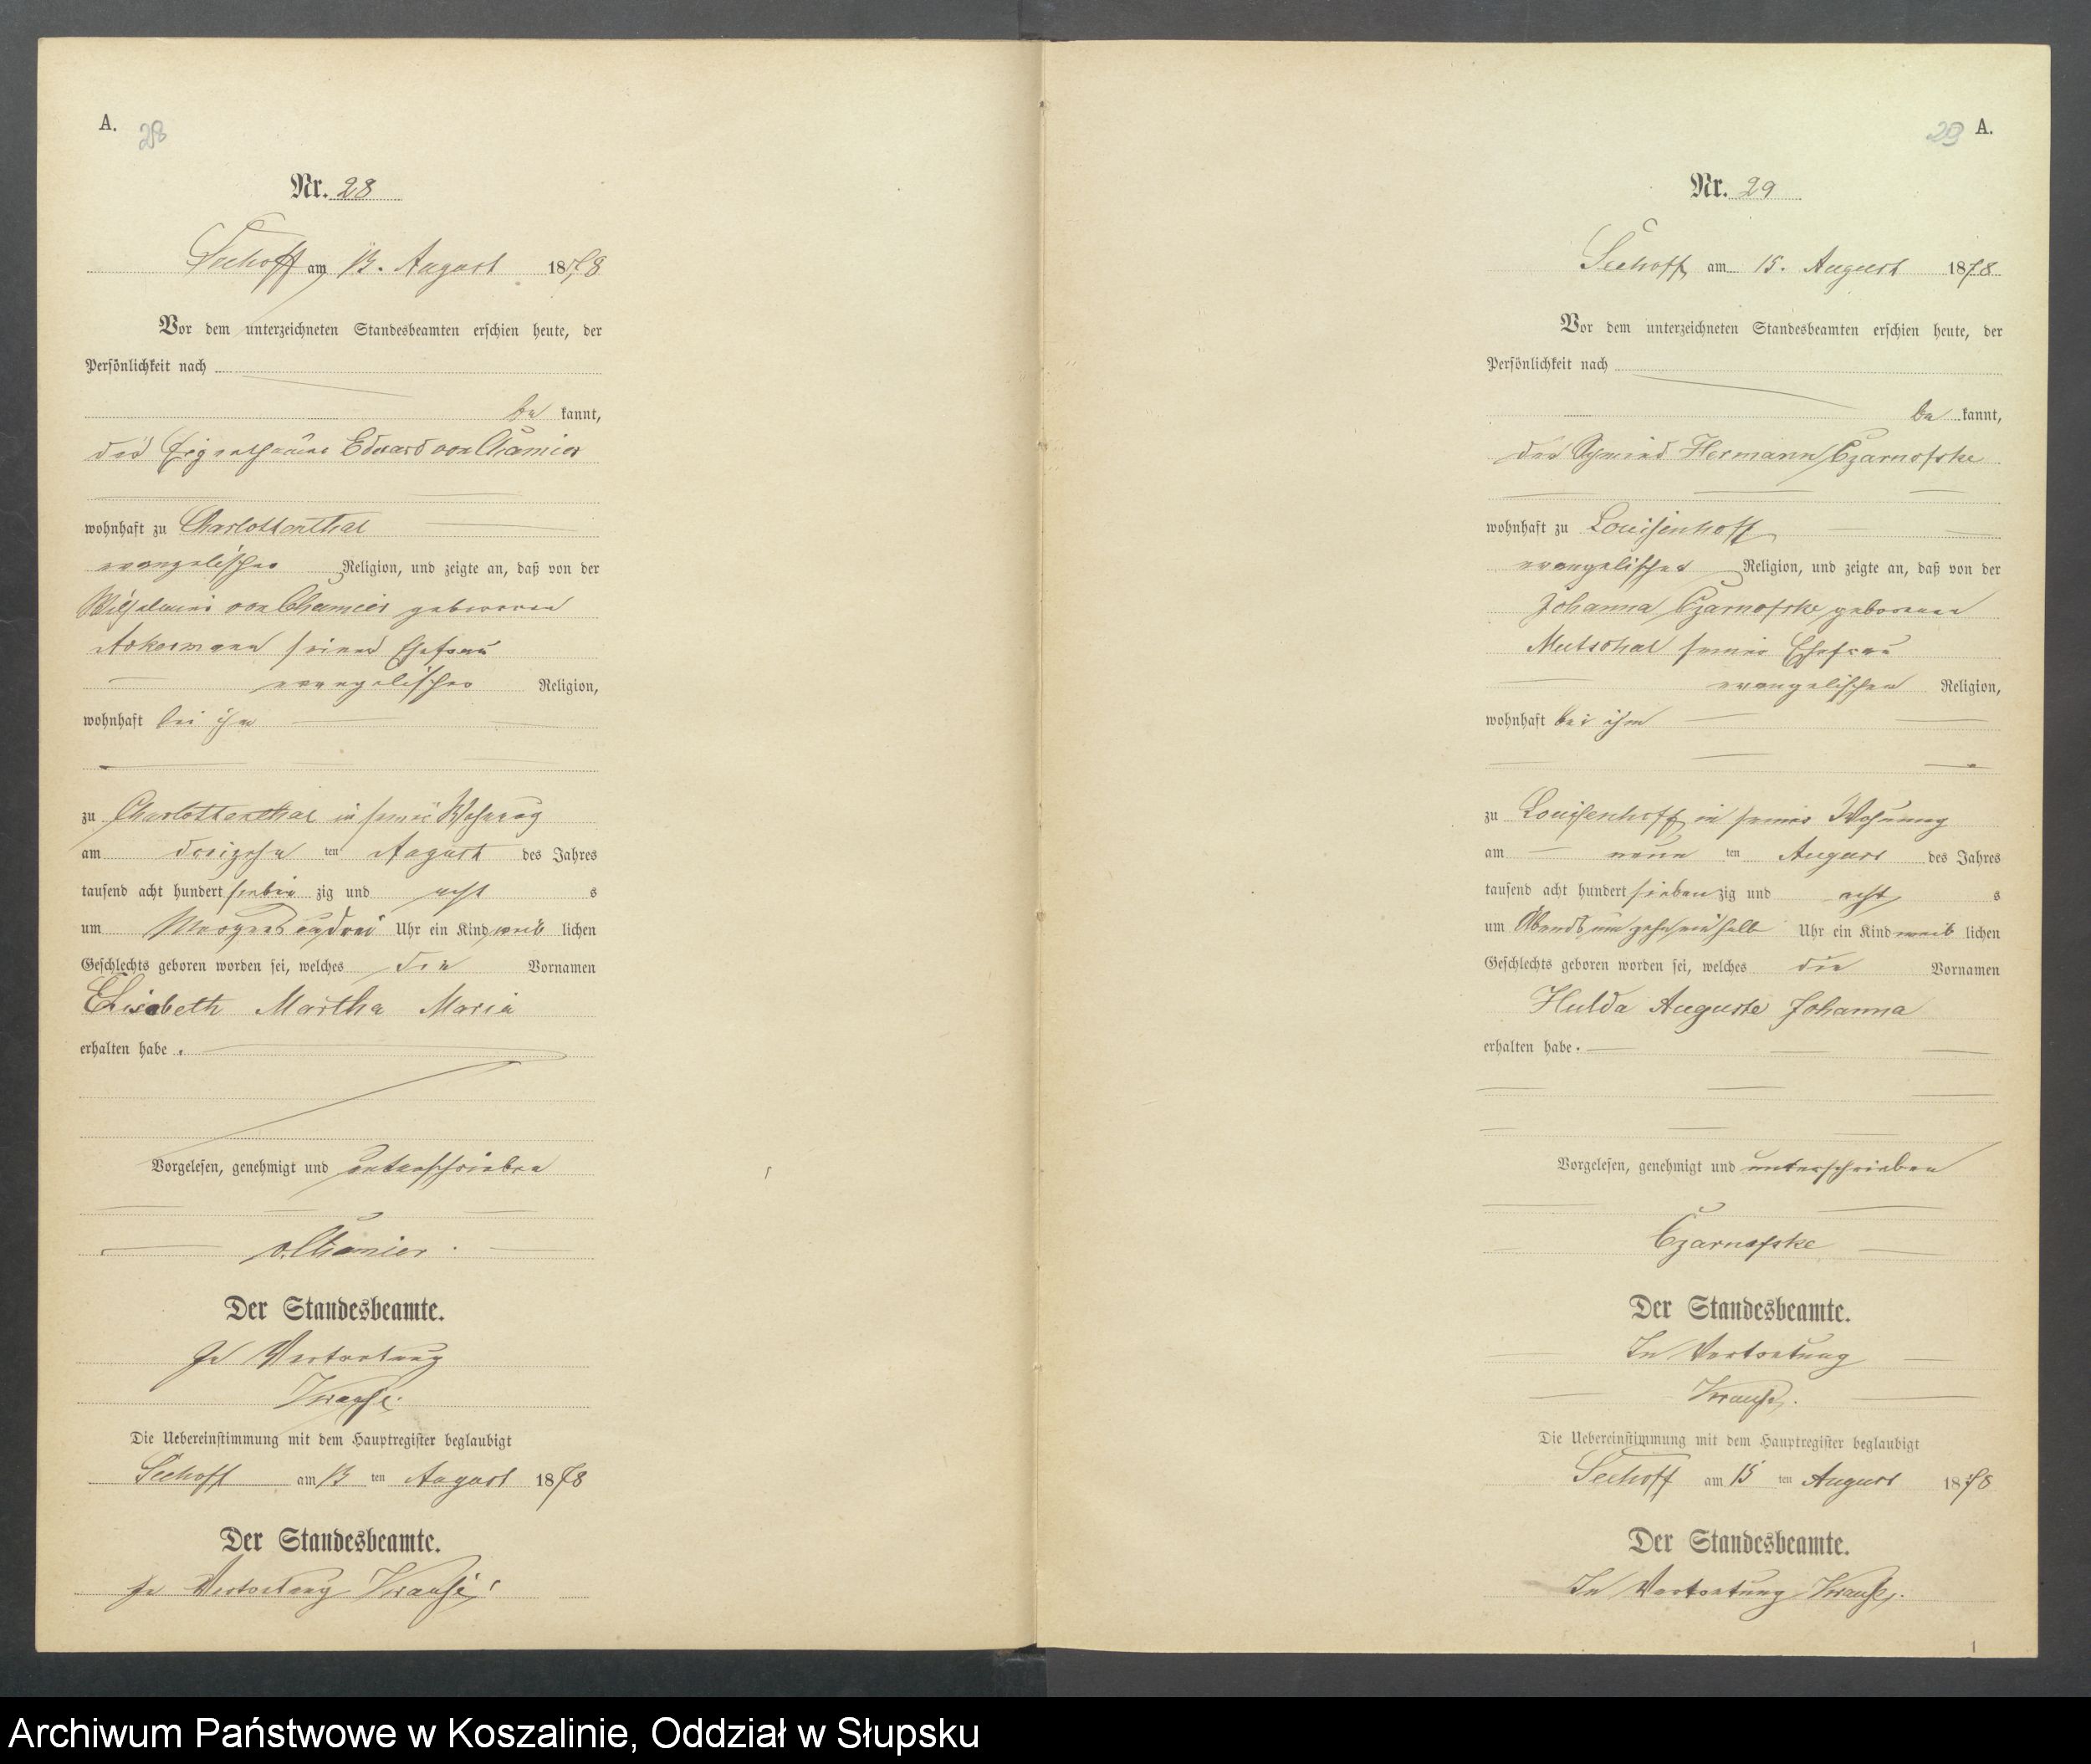 A. 28
Nr. 28
Seehoff am 13. August 1878
Vor dem unterzeichneten Standesbeamten erschien heute, der
Persönlichkeit nach
be kannt,
der Eigenthümer Eduard von Chamier
wohnhaft zu Charlottenthal
evangelischer Religion, und zeigte an, daß von der
Wilhelmine von Chamier geborenen
Ackermann seiner Ehefrau
evangelischer Religion,
wohnhaft bei ihm
zu Charlottenthal in seiner Wohnung
am dreizehn ten August des Jahres
tausend acht hundert sieben zig und acht s
um Morgens um drei Uhr ein Kind weib lichen
Geschlechts geboren worden sei, welches die Vornamen
Elisabeth Martha Maria
erhalten habe.
Vorgelesen, genehmigt und unterschrieben
v. Chamier.
Der Standesbeamte.
In Vertretung
Krause.
Die Uebereinstimmung mit dem Hauptregister beglaubigt
Seehoff am 13 ten August 1878
Der Standesbeamte.
In Vertretung Krause
29 A.
Nr. 29
Seehoff am 15. August 1878
Vor dem unterzeichneten Standesbeamten erschien heute, der
Persönlichkeit nach
be kannt,
der Schmied Hermann Czarnofske
wohnhaft zu Louisenhoff
evangelischer Religion, und zeigte an, daß von der
Johanna Czarnofske geborenen
Mutschal seiner Ehefrau
evangelischen Religion,
wohnhaft bei ihm
zu Louisenhoff in seiner Wohnung
am neun ten August des Jahres
tausend acht hundert sieben zig und acht s
um Abends um zehn ein halb Uhr ein Kind weib lichen
Geschlechts geboren worden sei, welches die Vornamen
Hulda Auguste Johanna
erhalten habe.
Vorgelesen, genehmigt und unterschrieben
Czarnofske
Der Standesbeamte.
In Vertretung
Krause.
Die Uebereinstimmung mit dem Hauptregister beglaubigt
Seehoff am 15 ten August 1878
Der Standesbeamte.
In Vertretung Krause.
1
Archiwum Państwowe w Koszalinie, Oddział w Słupsku